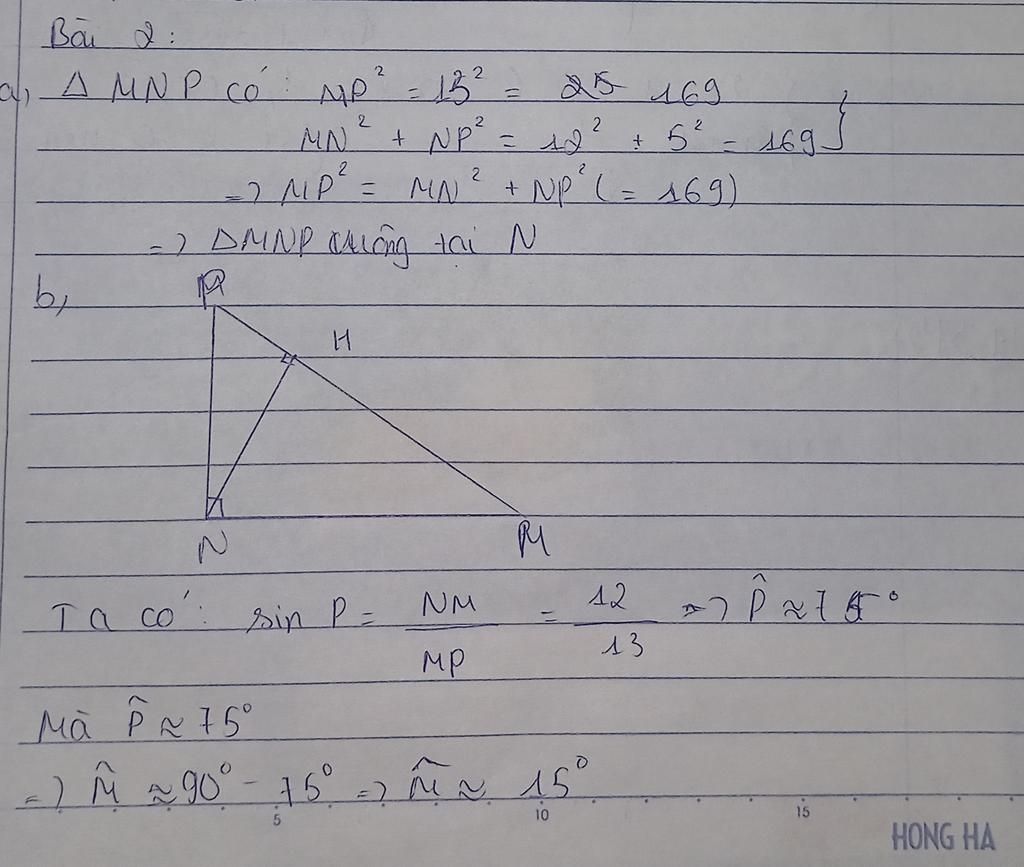 Bài 2:
a, Δ MNP có: MP² = 13² = 25 169
MN² + NP² = 12² + 5² = 169 }
=> MP² = MN² + NP² (= 169)
=> ΔMNP vuông tại N
b,
P
H
N
M
Ta có: sin P = NM / MP = 12 / 13 => P̂ ≈ 75°
Mà P̂ ≈ 75°
=> M̂ ≈ 90° - 75° => M̂ ≈ 15°
5 10 15
HONG HA